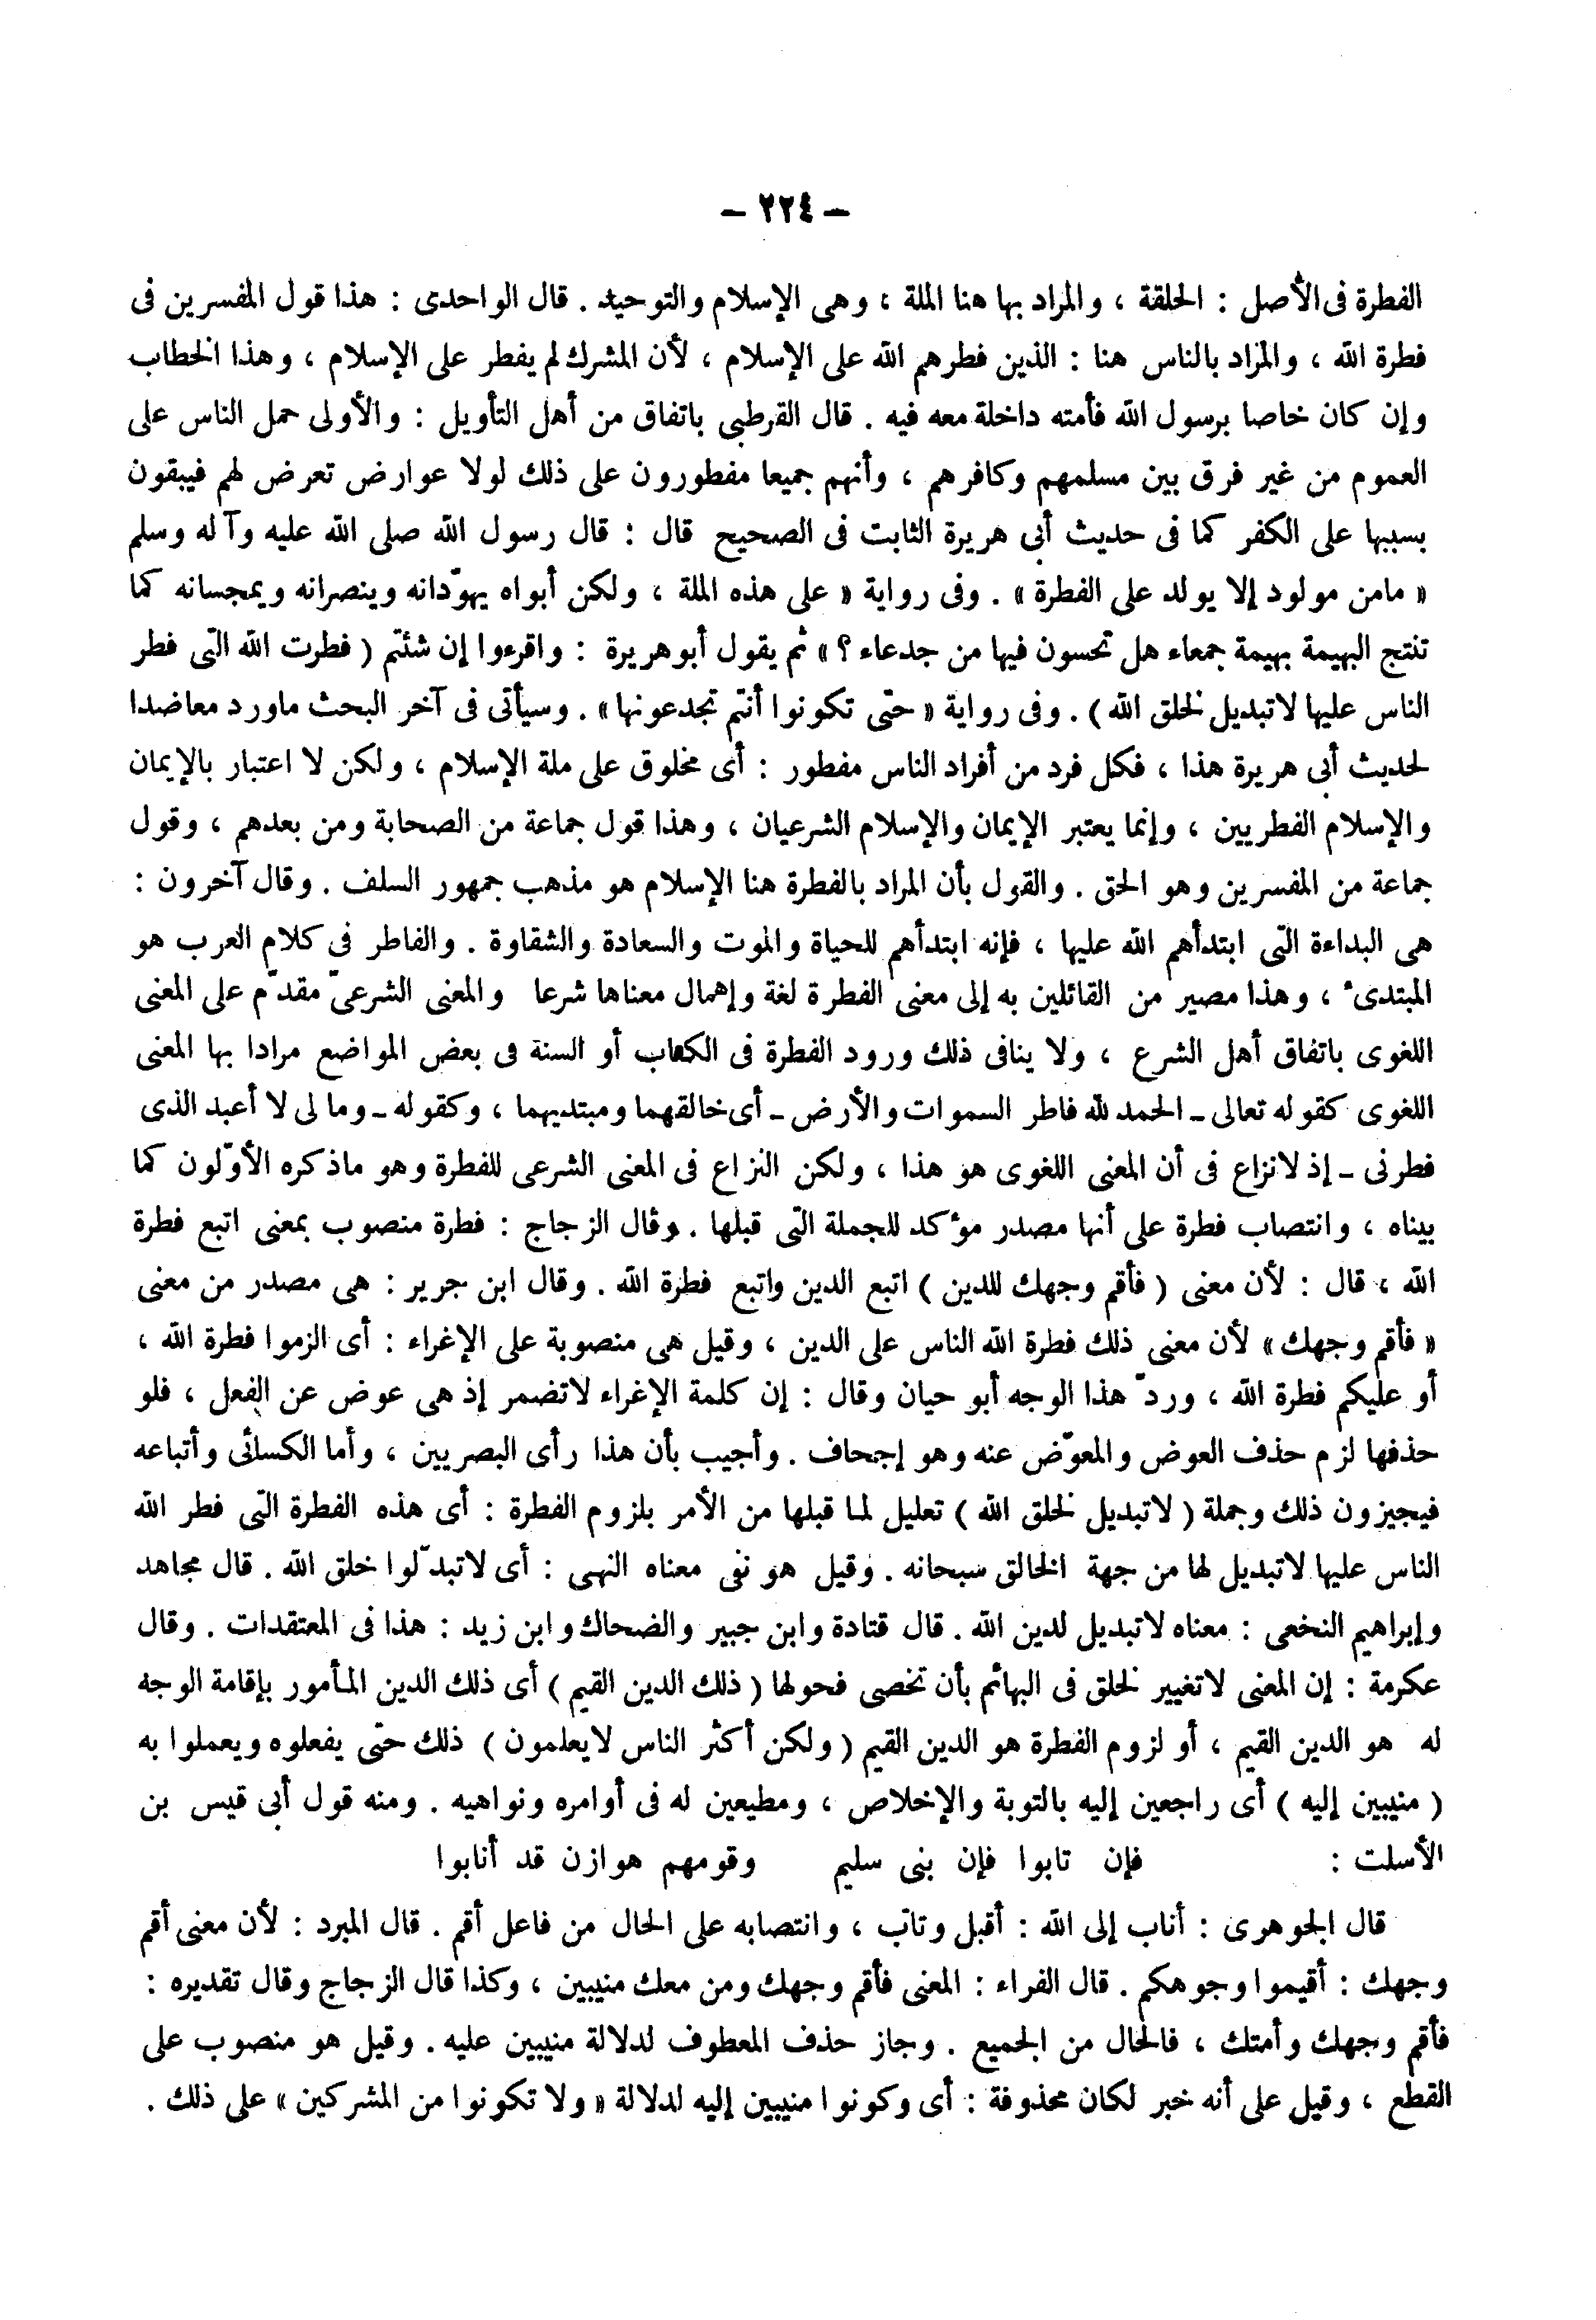 – ٢٢٤ –
الفطرة فى الأصل : الخلقة ، والمراد بها هنا الملة ، وهى الإسلام والتوحيد . قال الواحدى : هذا قول المفسرين فى
فطرة الله ، والمراد بالناس هنا : الذين فطرهم الله على الإسلام ، لأن المشرك لم يفطر على الإسلام ، وهذا الخطاب
وإن كان خاصا برسول الله فأمته داخلة معه فيه . قال القرطبى باتفاق من أهل التأويل : والأولى حمل الناس على
العموم من غير فرق بين مسلمهم وكافرهم ، وأنهم جميعا مفطورون على ذلك لولا عوارض تعرض لهم فيبقون
بسببها على الكفر كما فى حديث أبى هريرة الثابت فى الصحيح قال : قال رسول الله صلى الله عليه وآله وسلم
« مامن مولود إلا يولد على الفطرة » . وفى رواية « على هذه الملة ، ولكن أبواه يهوّدانه وينصرانه ويمجسانه كما
تنتج البهيمة بهيمة جمعاء هل تحسون فيها من جدعاء ؟ » ثم يقول أبوهريرة : واقرءوا إن شئتم ( فطرت الله التى فطر
الناس عليها لاتبديل لخلق الله ) . وفى رواية « حتى تكونوا أنتم تجدعونها » . وسيأتى فى آخر البحث ماورد معاضدا
لحديث أبى هريرة هذا ، فكل فرد من أفراد الناس مفطور : أى مخلوق على ملة الإسلام ، ولكن لا اعتبار بالإيمان
والإسلام الفطريين ، وإنما يعتبر الإيمان والإسلام الشرعيان ، وهذا قول جماعة من الصحابة ومن بعدهم ، وقول
جماعة من المفسرين وهو الحق . والقول بأن المراد بالفطرة هنا الإسلام هو مذهب جمهور السلف . وقال آخرون :
هى البداءة التى ابتدأهم الله عليها ، فإنه ابتدأهم للحياة والموت والسعادة والشقاوة . والفاطر فى كلام العرب هو
المبتدىء ، وهذا مصير من القائلين به إلى معنى الفطرة لغة وإهمال معناها شرعا والمعنى الشرعىّ مقدّم على المعنى
اللغوى باتفاق أهل الشرع ، ولا ينافى ذلك ورود الفطرة فى الكتاب أو السنة فى بعض المواضع مرادا بها المعنى
اللغوى كقوله تعالى ـ الحمد لله فاطر السموات والأرض ـ أى خالقهما ومبتديهما ، وكقوله ـ وما لى لا أعبد الذى
فطرنى ـ إذ لانزاع فى أن المعنى اللغوى هو هذا ، ولكن النزاع فى المعنى الشرعى للفطرة وهو ماذكره الأوّلون كما
بيناه ، وانتصاب فطرة على أنها مصدر مؤكد للجملة التى قبلها . وقال الزجاج : فطرة منصوب بمعنى اتبع فطرة
الله ، قال : لأن معنى ( فأقم وجهك للدين ) اتبع الدين واتبع فطرة الله . وقال ابن جرير : هى مصدر من معنى
« فأقم وجهك » لأن معنى ذلك فطرة الله الناس على الدين ، وقيل هى منصوبة على الإغراء : أى الزموا فطرة الله ،
أو عليكم فطرة الله ، وردّ هذا الوجه أبو حيان وقال : إن كلمة الإغراء لاتضمر إذ هى عوض عن الفعل ، فلو
حذفها لزم حذف العوض والمعوّض عنه وهو إجحاف . وأجيب بأن هذا رأى البصريين ، وأما الكسائى وأتباعه
فيجيزون ذلك وجملة ( لاتبديل لخلق الله ) تعليل لما قبلها من الأمر بلزوم الفطرة : أى هذه الفطرة التى فطر الله
الناس عليها لاتبديل لها من جهة الخالق سبحانه . وقيل هو نفى معناه النهى : أى لاتبدّلوا خلق الله . قال مجاهد
وإبراهيم النخعى : معناه لاتبديل لدين الله . قال قتادة وابن جبير والضحاك وابن زيد : هذا فى المعتقدات . وقال
عكرمة : إن المعنى لاتغيير لخلق فى البهائم بأن تخصى فحولها ( ذلك الدين القيم ) أى ذلك الدين المأمور بإقامة الوجه
له هو الدين القيم ، أو لزوم الفطرة هو الدين القيم ( ولكن أكثر الناس لايعلمون ) ذلك حتى يفعلوه ويعملوا به
( منيبين إليه ) أى راجعين إليه بالتوبة والإخلاص ، ومطيعين له فى أوامره ونواهيه . ومنه قول أبى قيس بن
الأسلت : فإن تابوا فإن بنى سليم وقومهم هوازن قد أنابوا
قال الجوهرى : أناب إلى الله : أقبل وتاب ، وانتصابه على الحال من فاعل أقم . قال المبرد : لأن معنى أقم
وجهك : أقيموا وجوهكم . قال الفراء : المعنى فأقم وجهك ومن معك منيبين ، وكذا قال الزجاج وقال تقديره :
فأقم وجهك وأمتك ، فالحال من الجميع . وجاز حذف المعطوف لدلالة منيبين عليه . وقيل هو منصوب على
القطع ، وقيل على أنه خبر لكان محذوفة : أى وكونوا منيبين إليه لدلالة « ولا تكونوا من المشركين » على ذلك .